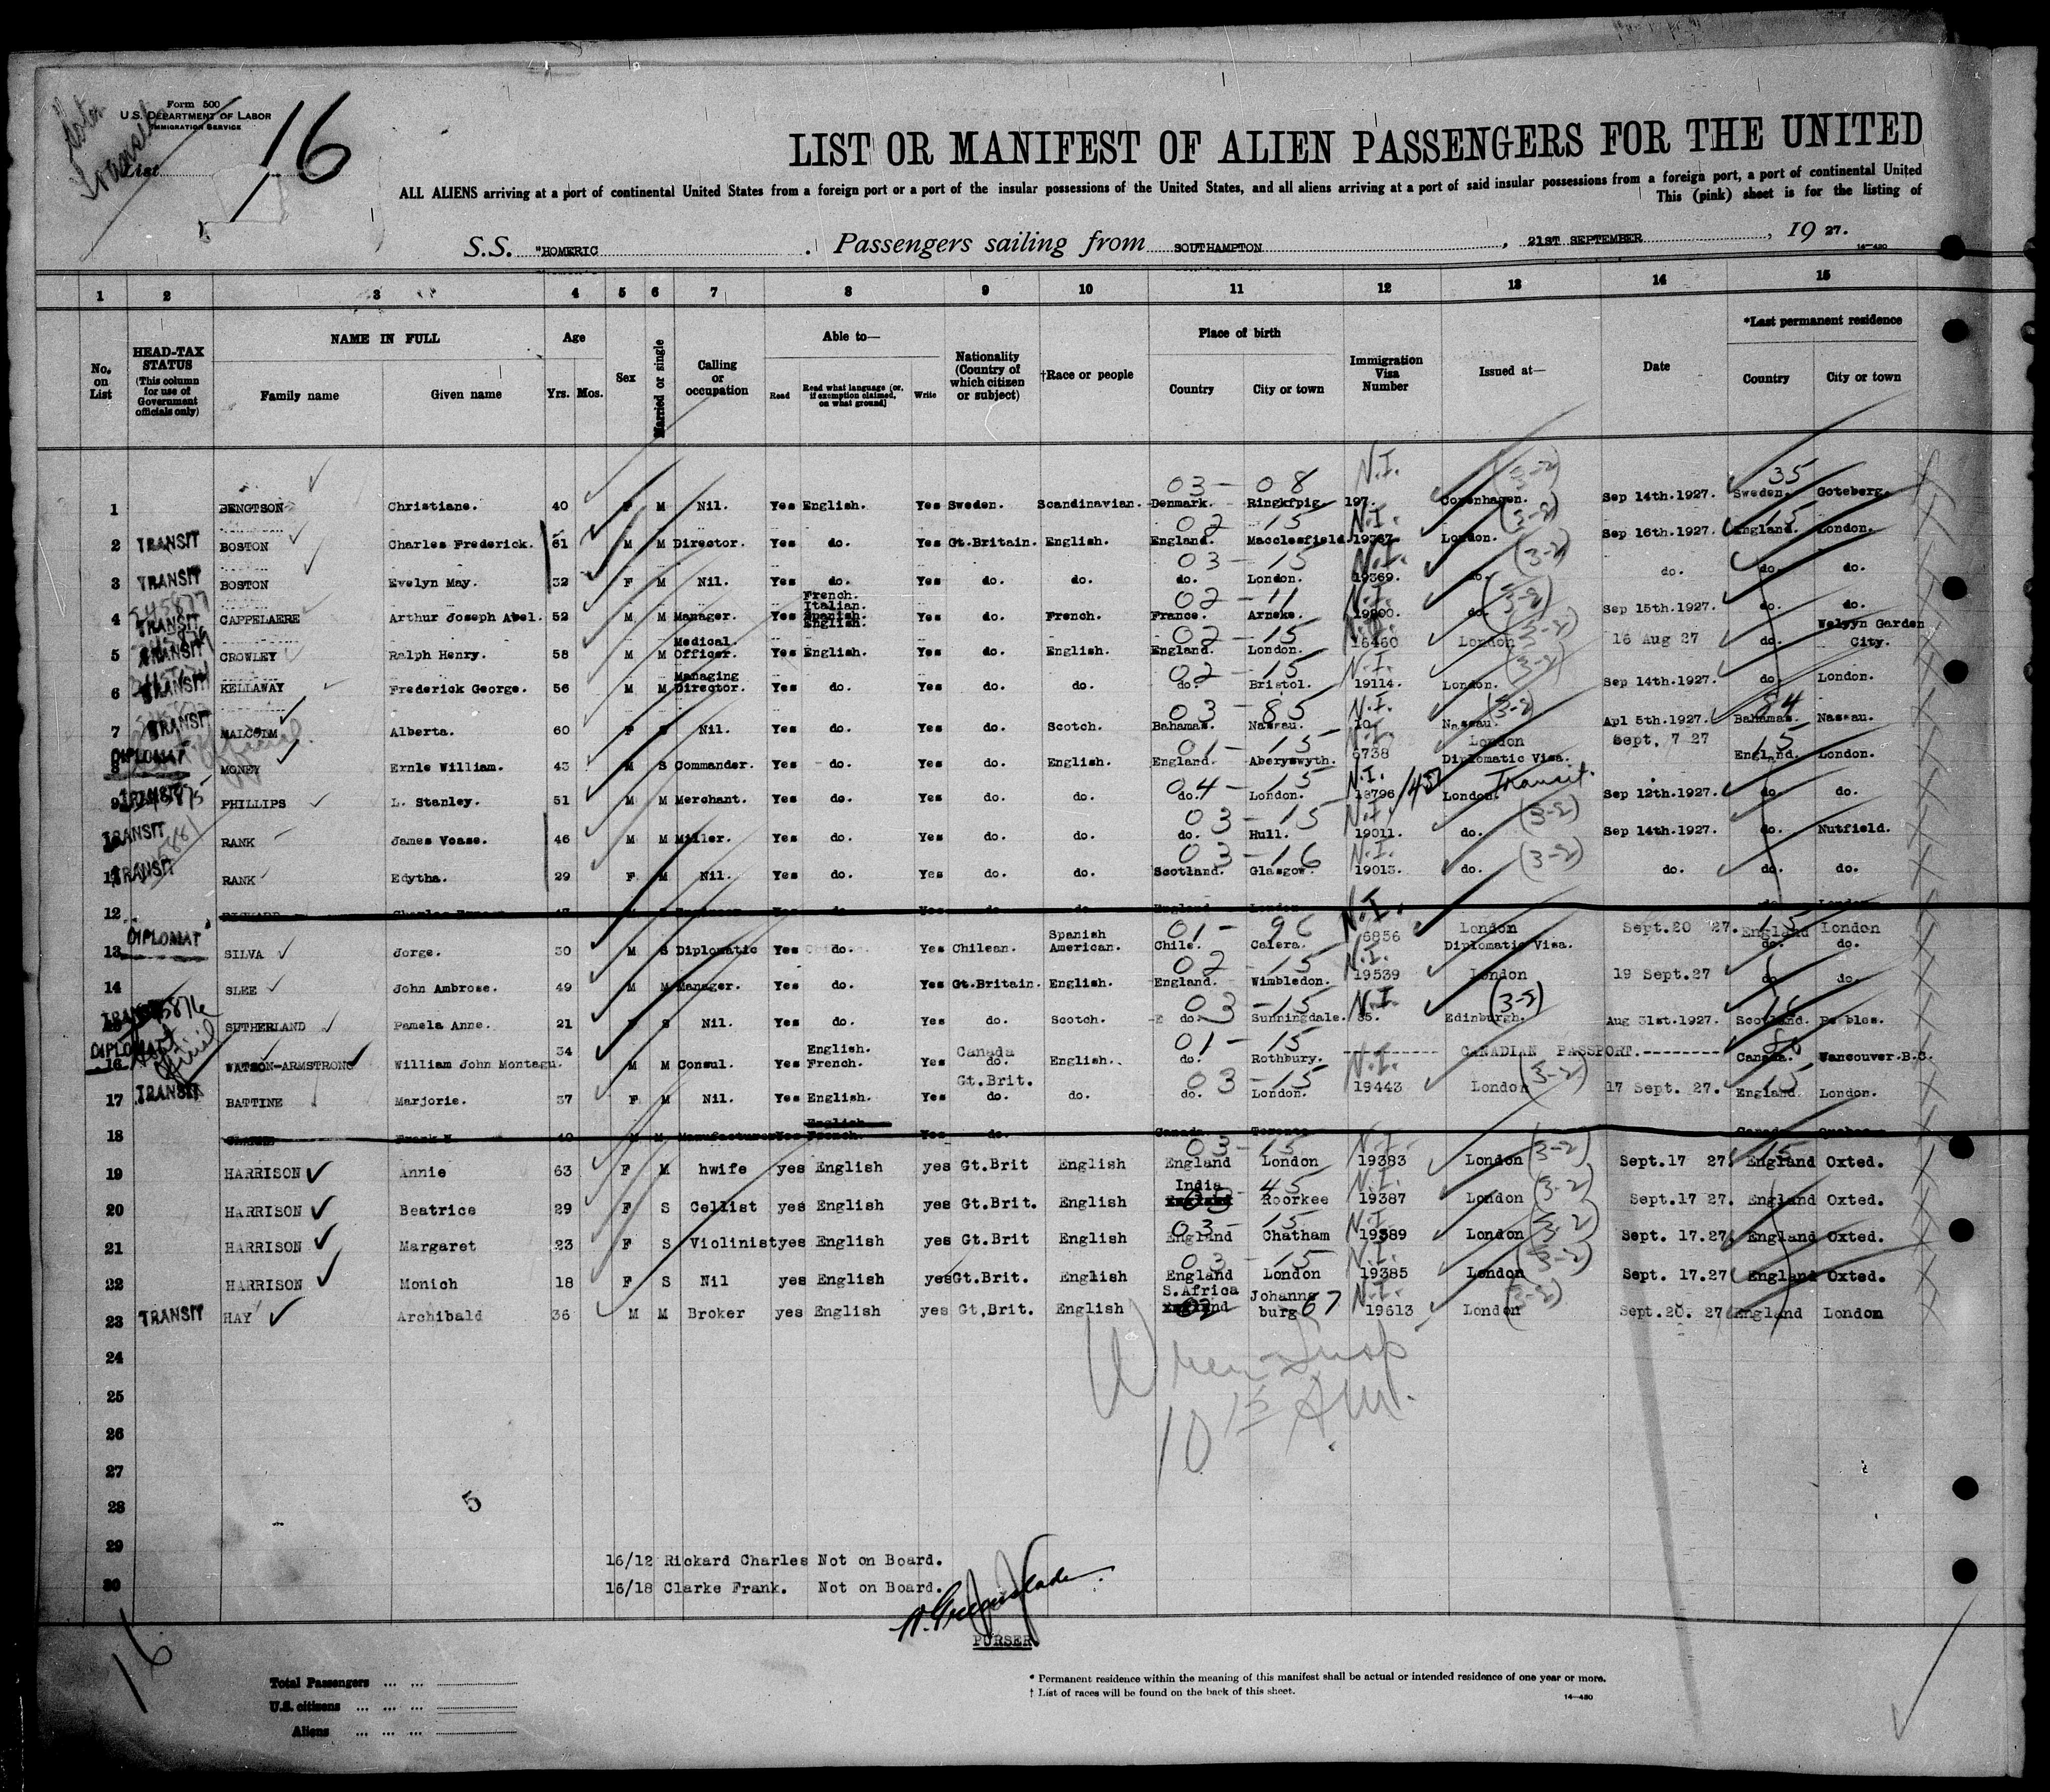 Form 500
U.S. DEPARTMENT OF LABOR
IMMIGRATION SERVICE
List 16
LIST OR MANIFEST OF ALIEN PASSENGERS FOR THE UNITED
ALL ALIENS arriving at a port of continental United States from a foreign port or a port of the insular possessions of the United States, and all aliens arriving at a port of said insular possessions from a foreign port, a port of continental United
This (pink) sheet is for the listing of
S.S. "HOMERIC . Passengers sailing from SOUTHAMPTON , 21ST SEPTEMBER , 19 27.
14-430
1 2 3 4 5 6 7 8 9 10 11 12 13 14 15
No. on List
HEAD-TAX STATUS (This column for use of Government officials only)
NAME IN FULL Family name Given name
Age Yrs. Mos.
Sex
Married or single
Calling or occupation
Able to— Read Read what language (or, if exemption claimed, on what ground) Write
Nationality (Country of which citizen or subject)
†Race or people
Place of birth Country City or town
Immigration Visa Number
Issued at—
Date
*Last permanent residence Country City or town
03 - 08 N.I. (3-2) 35
1 BENGTSON Christiane. 40 F M Nil. Yes English. Yes Sweden. Scandinavian. Denmark. Ringkfpig. 197. Copenhagen. Sep 14th.1927. Sweden. Goteberg.
02 - 15 N.I. (3-2) 15
2 TRANSIT BOSTON Charles Frederick. 61 M M Director. Yes do. Yes Gt.Britain. English. England. Macclesfield. 19367. London. Sep 16th.1927. England. London.
03 - 15 N.I. (3-2)
3 TRANSIT BOSTON Evelyn May. 32 F M Nil. Yes do. Yes do. do. do. London. 19369. do. do. do. do.
02 - 11 N.I. (3-2)
4 TRANSIT CAPPELAERE Arthur Joseph Abel. 52 M M Manager. Yes French. Italian. Spanish. English. Yes do. French. France. Arneke. 19200. do. Sep 15th.1927. do. do.
02 - 15 (3-2)
5 TRANSIT CROWLEY Ralph Henry. 58 M M Medical Officer. Yes English. Yes do. English. England. London. 16460 London 16 Aug 27 do. Welyyn Garden City.
02 - 15 N.I. (3-2)
6 TRANSIT KELLAWAY Frederick George. 56 M M Managing Director. Yes do. Yes do. do. do. Bristol. 19114. London. Sep 14th.1927. do. London.
03 - 85 N.I. (3-2) 84
7 TRANSIT MALCOLM Alberta. 60 F S Nil. Yes do. Yes do. Scotch. Bahamas. Nassau. 10. Nassau. Apl 5th.1927. Bahamas. Nassau.
01 - 15 15
8 DIPLOMAT MONEY Ernle William. 43 M S Commander. Yes do. Yes do. English. England. Aberyswyth. 6738 London Diplomatic Visa. Sept. 7 27 England. London.
04 - 15 N.I. Transit.
9 TRANSIT PHILLIPS L. Stanley. 51 M M Merchant. Yes do. Yes do. do. do. London. 18796 London. Sep 12th.1927. do. do.
03 - 15 N.I. (3-2)
10 TRANSIT RANK James Voase. 46 M M Miller. Yes do. Yes do. do. do. Hull. 19011. do. Sep 14th.1927. do. Nutfield.
03 - 16 N.I. (3-2)
11 TRANSIT RANK Edytha. 29 F M Nil. Yes do. Yes do. do. Scotland. Glasgow. 19013. do. do. do. do.
12
01 - 96 N.I. 15
13 DIPLOMAT SILVA Jorge. 30 M S Diplomatic Yes do. Yes Chilean. Spanish American. Chile. Calera. 6836 London Diplomatic Visa. Sept.20 '27. England do. London do.
02 - 15 N.I.
14 SLEE John Ambrose. 49 M M Manager. Yes do. Yes Gt.Britain. English. England. Wimbledon. 19539 London 19 Sept.27 do. do.
03 - 15 N.I. (3-2) 16
15 TRANSIT SUTHERLAND Pamela Anne. 21 F S Nil. Yes do. Yes do. Scotch. do. Sunningdale. 85. Edinburgh. Aug 31st.1927. Scotland. Peebles.
01 - 15 N.I.
16 DIPLOMAT WATSON-ARMSTRONG William John Montagu. 34 M M Consul. Yes English. French. Yes Canada do. English. do. Rothbury. CANADIAN PASSPORT. Canada. Vancouver.B.C.
03 - 15 (3-2) 15
17 TRANSIT BATTINE Marjorie. 37 F M Nil. Yes English. Yes Gt.Brit. do. do. do. London. 19443 London 17 Sept. 27. England. London.
18
03 - 15 N.I. (3-2) 15
19 HARRISON Annie 63 F M hwife yes English yes Gt.Brit English England London 19383 London Sept.17 27. England Oxted.
03 - 45 N.I. (3-2)
20 HARRISON Beatrice 29 F S Cellist yes English yes Gt.Brit. English India Roorkee 19387 London Sept.17 27. England Oxted.
03 - 15 N.I. (3-2)
21 HARRISON Margaret 23 F S Violinist yes English yes Gt.Brit English England Chatham 19389 London Sept. 17.27. England Oxted.
03 - 15 N.I. (3-2)
22 HARRISON Monich 18 F S Nil yes English yes Gt.Brit. English England London 19385 London Sept. 17.27 England Oxted.
02 67 N.I. (3-2)
23 TRANSIT HAY Archibald 36 M M Broker yes English yes Gt.Brit. English S.Africa Johannsburg 19613 London Sept.20. 27 England London
24
25
10 15 A.M.
26
27
28
5
29
30
16/12 Rickard Charles Not on Board.
16/18 Clarke Frank. Not on Board.
PURSER
16
Total Passengers
U.S. citizens
Aliens
* Permanent residence within the meaning of this manifest shall be actual or intended residence of one year or more.
† List of races will be found on the back of this sheet.
14-430